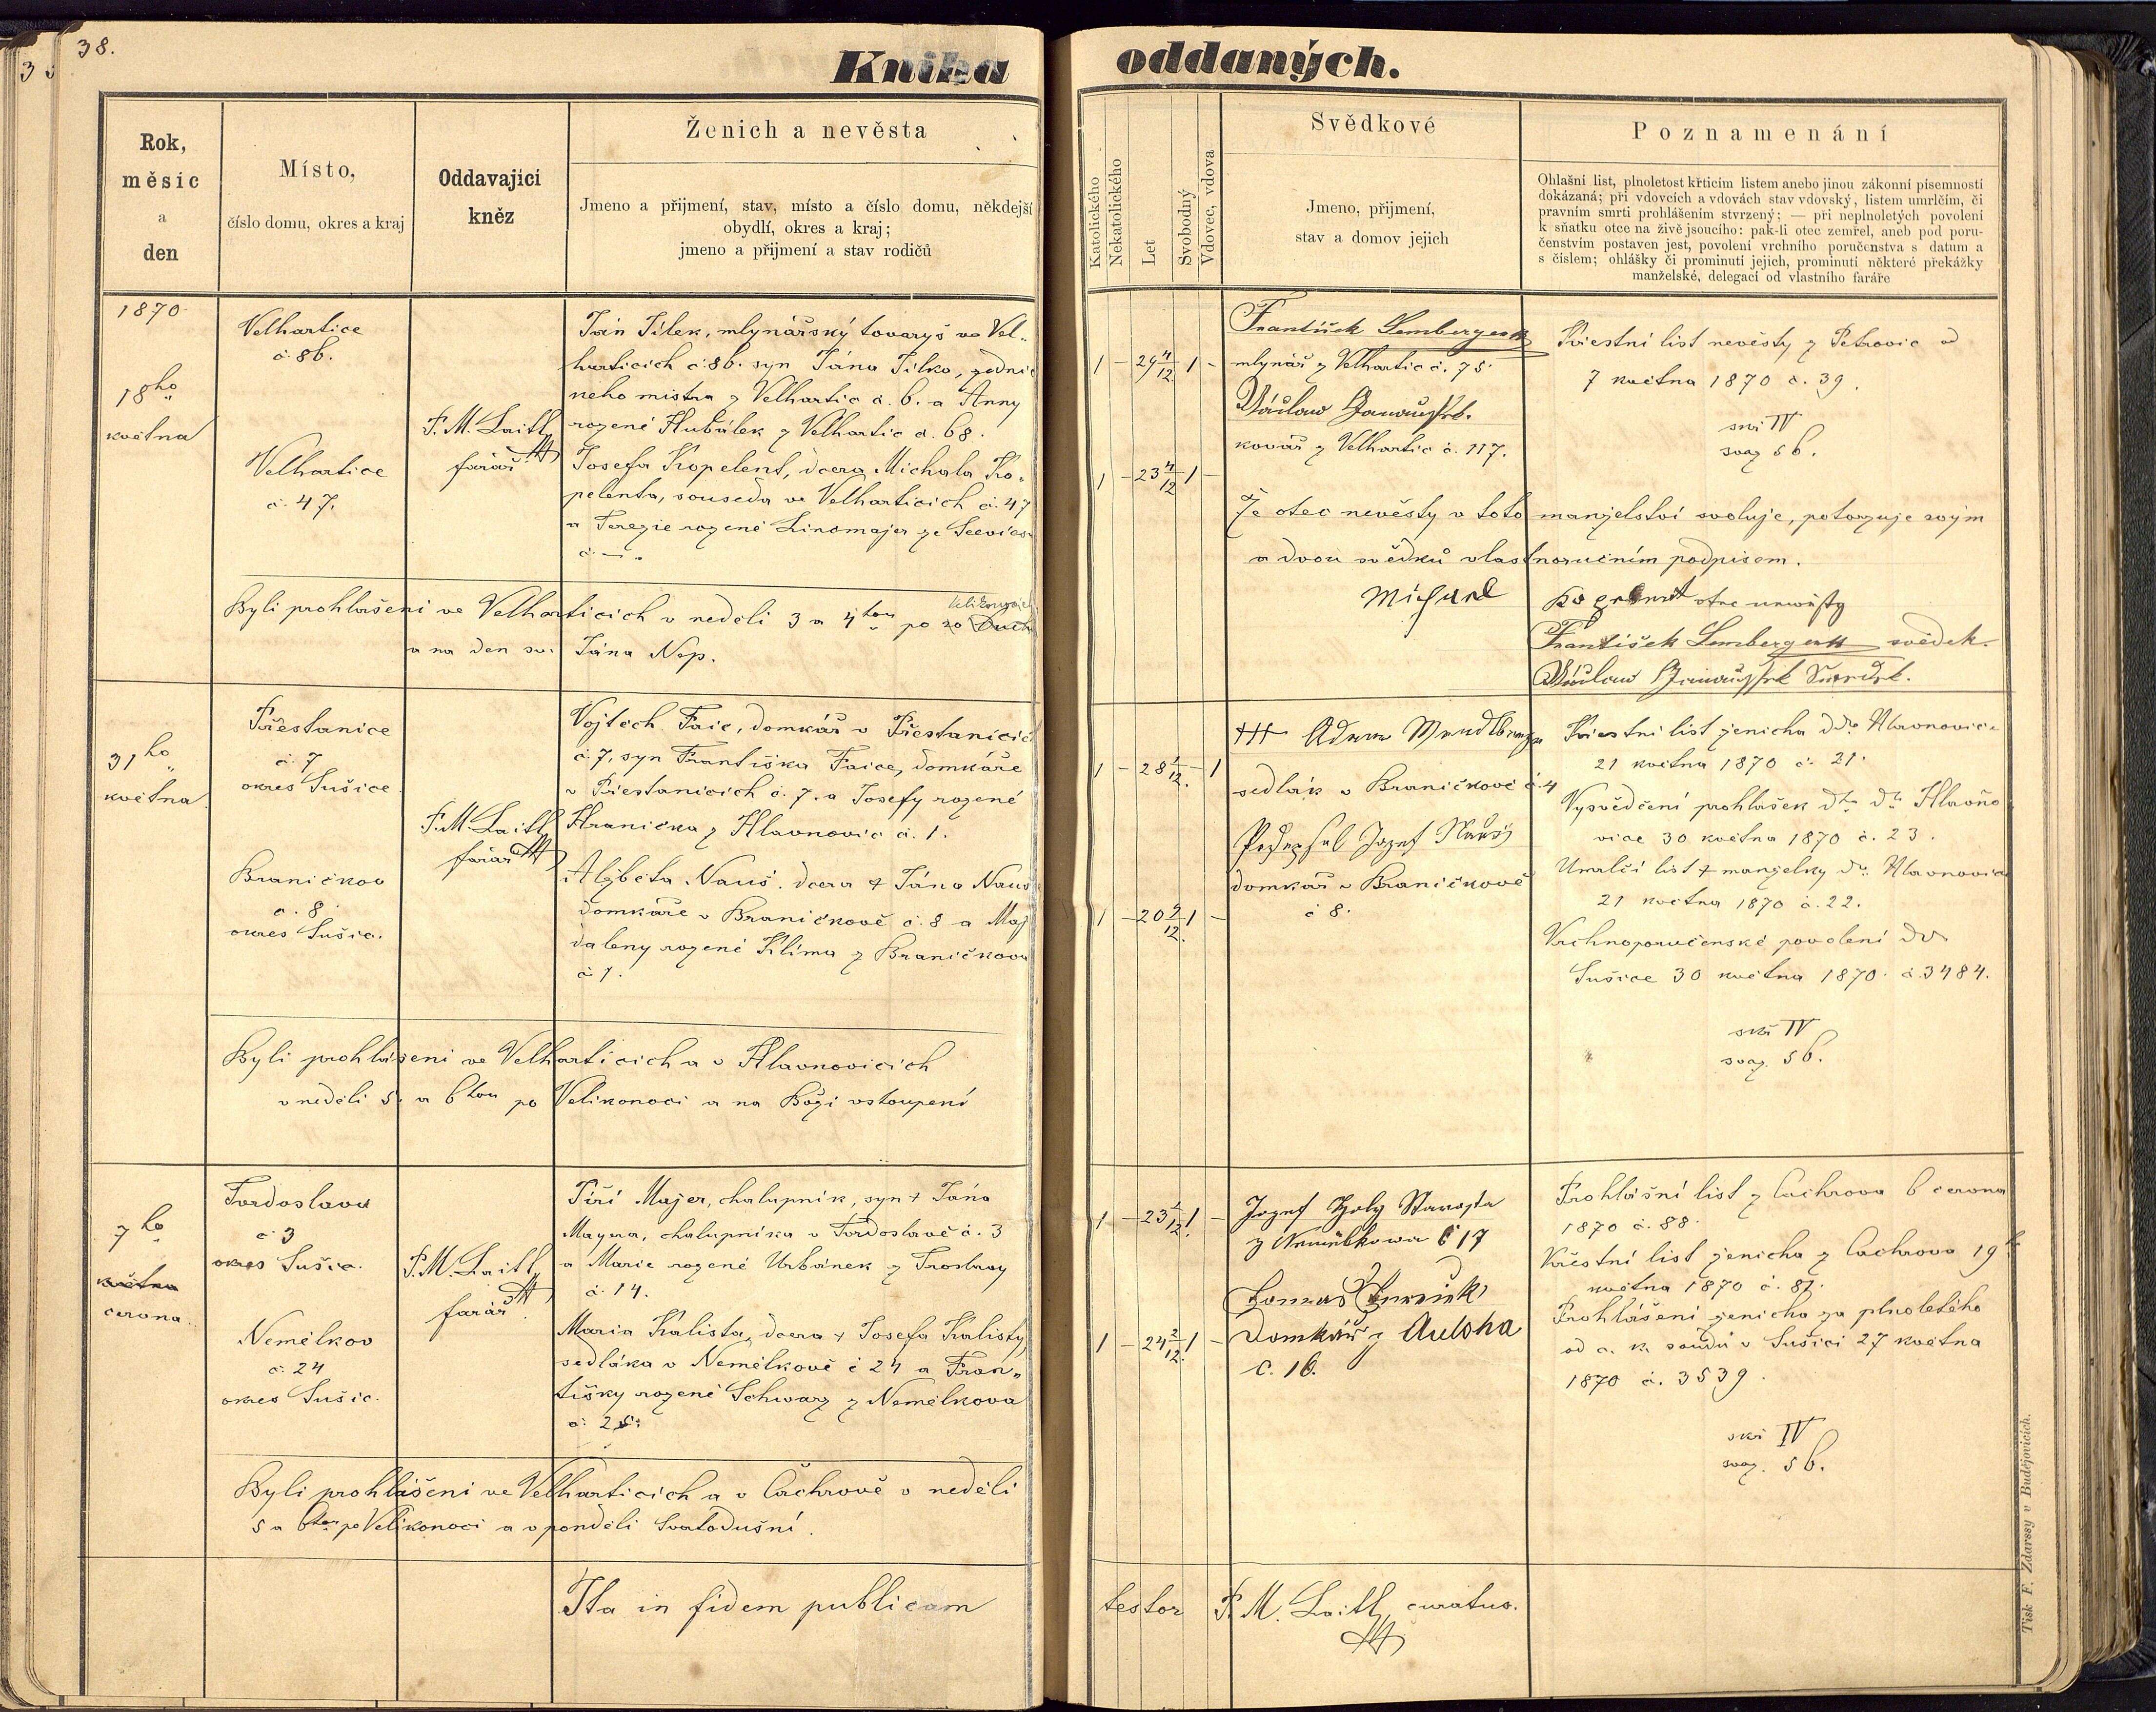 38.
Kniha oddaných.
Rok,
měsíc
a
den
Místo,
číslo domu, okres a kraj
Oddavající
kněz
Ženich a nevěsta
Jmeno a přijmení, stav, místo a číslo domu, někdejší
obydlí, okres a kraj;
jmeno a přijmení a stav rodičů
Katolického
Nekatolického
Let
Svobodný
Vdovec, vdova
Svědkové
Jmeno, přijmení,
stav a domov jejich
Poznamenání
Ohlašní list, plnoletost křticím listem anebo jinou zákonní písemností
dokázaná; při vdovcích a vdovách stav vdovský, listem umrlčím, či
pravním smrti prohlášením stvrzený; — při neplnoletých povolení
k sňatku otce na živě jsoucího: pak-li otec zemřel, aneb pod poru-
čenstvím postaven jest, povolení vrchního poručenstva s datum a
s číslem; ohlášky či prominutí jejich, prominutí některé překážky
manželské, delegací od vlastního faráře
1870
18ho
května
Velhartice
č. 86.
Velhartice
č. 47.
P. M. Laitl,
farář
Ján Jílek, mlynářský tovaryš ve Vel-
harticích č. 86. syn Jána Jílka, zednic
neho mistra z Velhartic č. 6. a Anny
rozené Hubálek z Velhartic č. 68.
Josefa Kopelent, dcera Michala Ko-
pelenta, souseda ve Velharticích č. 47
a Terezie rozené Lindmajer ze
č. —.
Byli prohlášeni ve Velharticích v neděli 3 a 4tou po
a na den sv. Jána Nep.
1 – 29 4/12 1 –
1 – 23 4/12 1 –
František Lemberger
mlynář z Velhartic č. 75.
Václav
kovář z Velhartic č. 117.
Křestní list nevěsty z Petrovic
7 května 1870 č. 39.
skř IV
svaz 56.
Že otec nevěsty v toto manželství svoluje, potvrzuje svým
a dvou svědků vlastnoručním podpisem.
Michael Kopelent otec newěsty
František Lemberger svědek.
Václav
31ho
května
Přestanice
č. 7
okres Sušice
Braničkov
č. 8
okres Sušic.
P. M. Laitl,
farář
Vojtěch Faic, domkář v Přestanicích
č. 7, syn Františka Faice, domkáře
v Přestanicích č. 7. a Josefy rozené
Hranička z Hlavnovic č. 1.
Alžběta Nauš. dcera † Jána Nauš
domkáře v Braničkově č. 8 a Maj
daleny rozené Klíma z Braničkova
č. 1.
Byli prohlášeni ve Velharticích a v Hlavnovicích
v neděli 5. a 6tou po Velikonoci a na Boží vstoupení
1 – 28 1/12. – 1
1 – 20 9/12. 1 –
††† Adam
sedlák v Braničkově č. 4
Jozef Nauš
domkář v Braničkově
č 8.
Křestní list ženicha ddo Hlavnovice
21 května 1870 č. 21.
Vysvědčení prohlášek dto do Hlavňo
vice 30 května 1870 č. 23.
Umrlčí list † manželky do Hlavnovic
21 května 1870 č. 22.
Vrchnoporučenské povolení do
Sušice 30 května 1870. č. 3484.
skř IV
svaz. 56.
7ho
května
června
Tvrdoslava
č 3
okres Sušic.
Nemělkov
č. 24
okres Sušic.
P. M. Laitl,
farář
Jiří Majer, chalupník, syn † Jána
Mayera, chalupníka v Tvrdoslavě č. 3
a Marie rozené Urbánek z
č. 14.
Maria Kalista, dcera † Josefa Kalisty,
sedláka v Nemělkově č 24 a Fran-
tišky rozené Schwarz z Nemělkova
č: 25.
Byli prohlášeni ve Velharticích a v Čachrově v neděli
5 a 6tou po Velikonoci a v pondělí Svatodušní.
1 – 23 1/12. 1 –
1 – 24 2/12. 1 –
Jozef Holy Starosta
z Nemělkowa č 17
Domkář z
č. 16.
Prohlášní list z Čachrova 6 června
1870 č. 88.
Křestní list ženicha z Čachrova 19
května 1870 č. 87.
Prohlášení ženicha za plnoletého
od c. k. soudu v Sušici 27 května
1870 č. 3539.
skř IV
svaz. 56.
Ita in fidem publicam testor P. M. Laitl, curatus.
Tisk F. Zdarssy v Budějovicích.